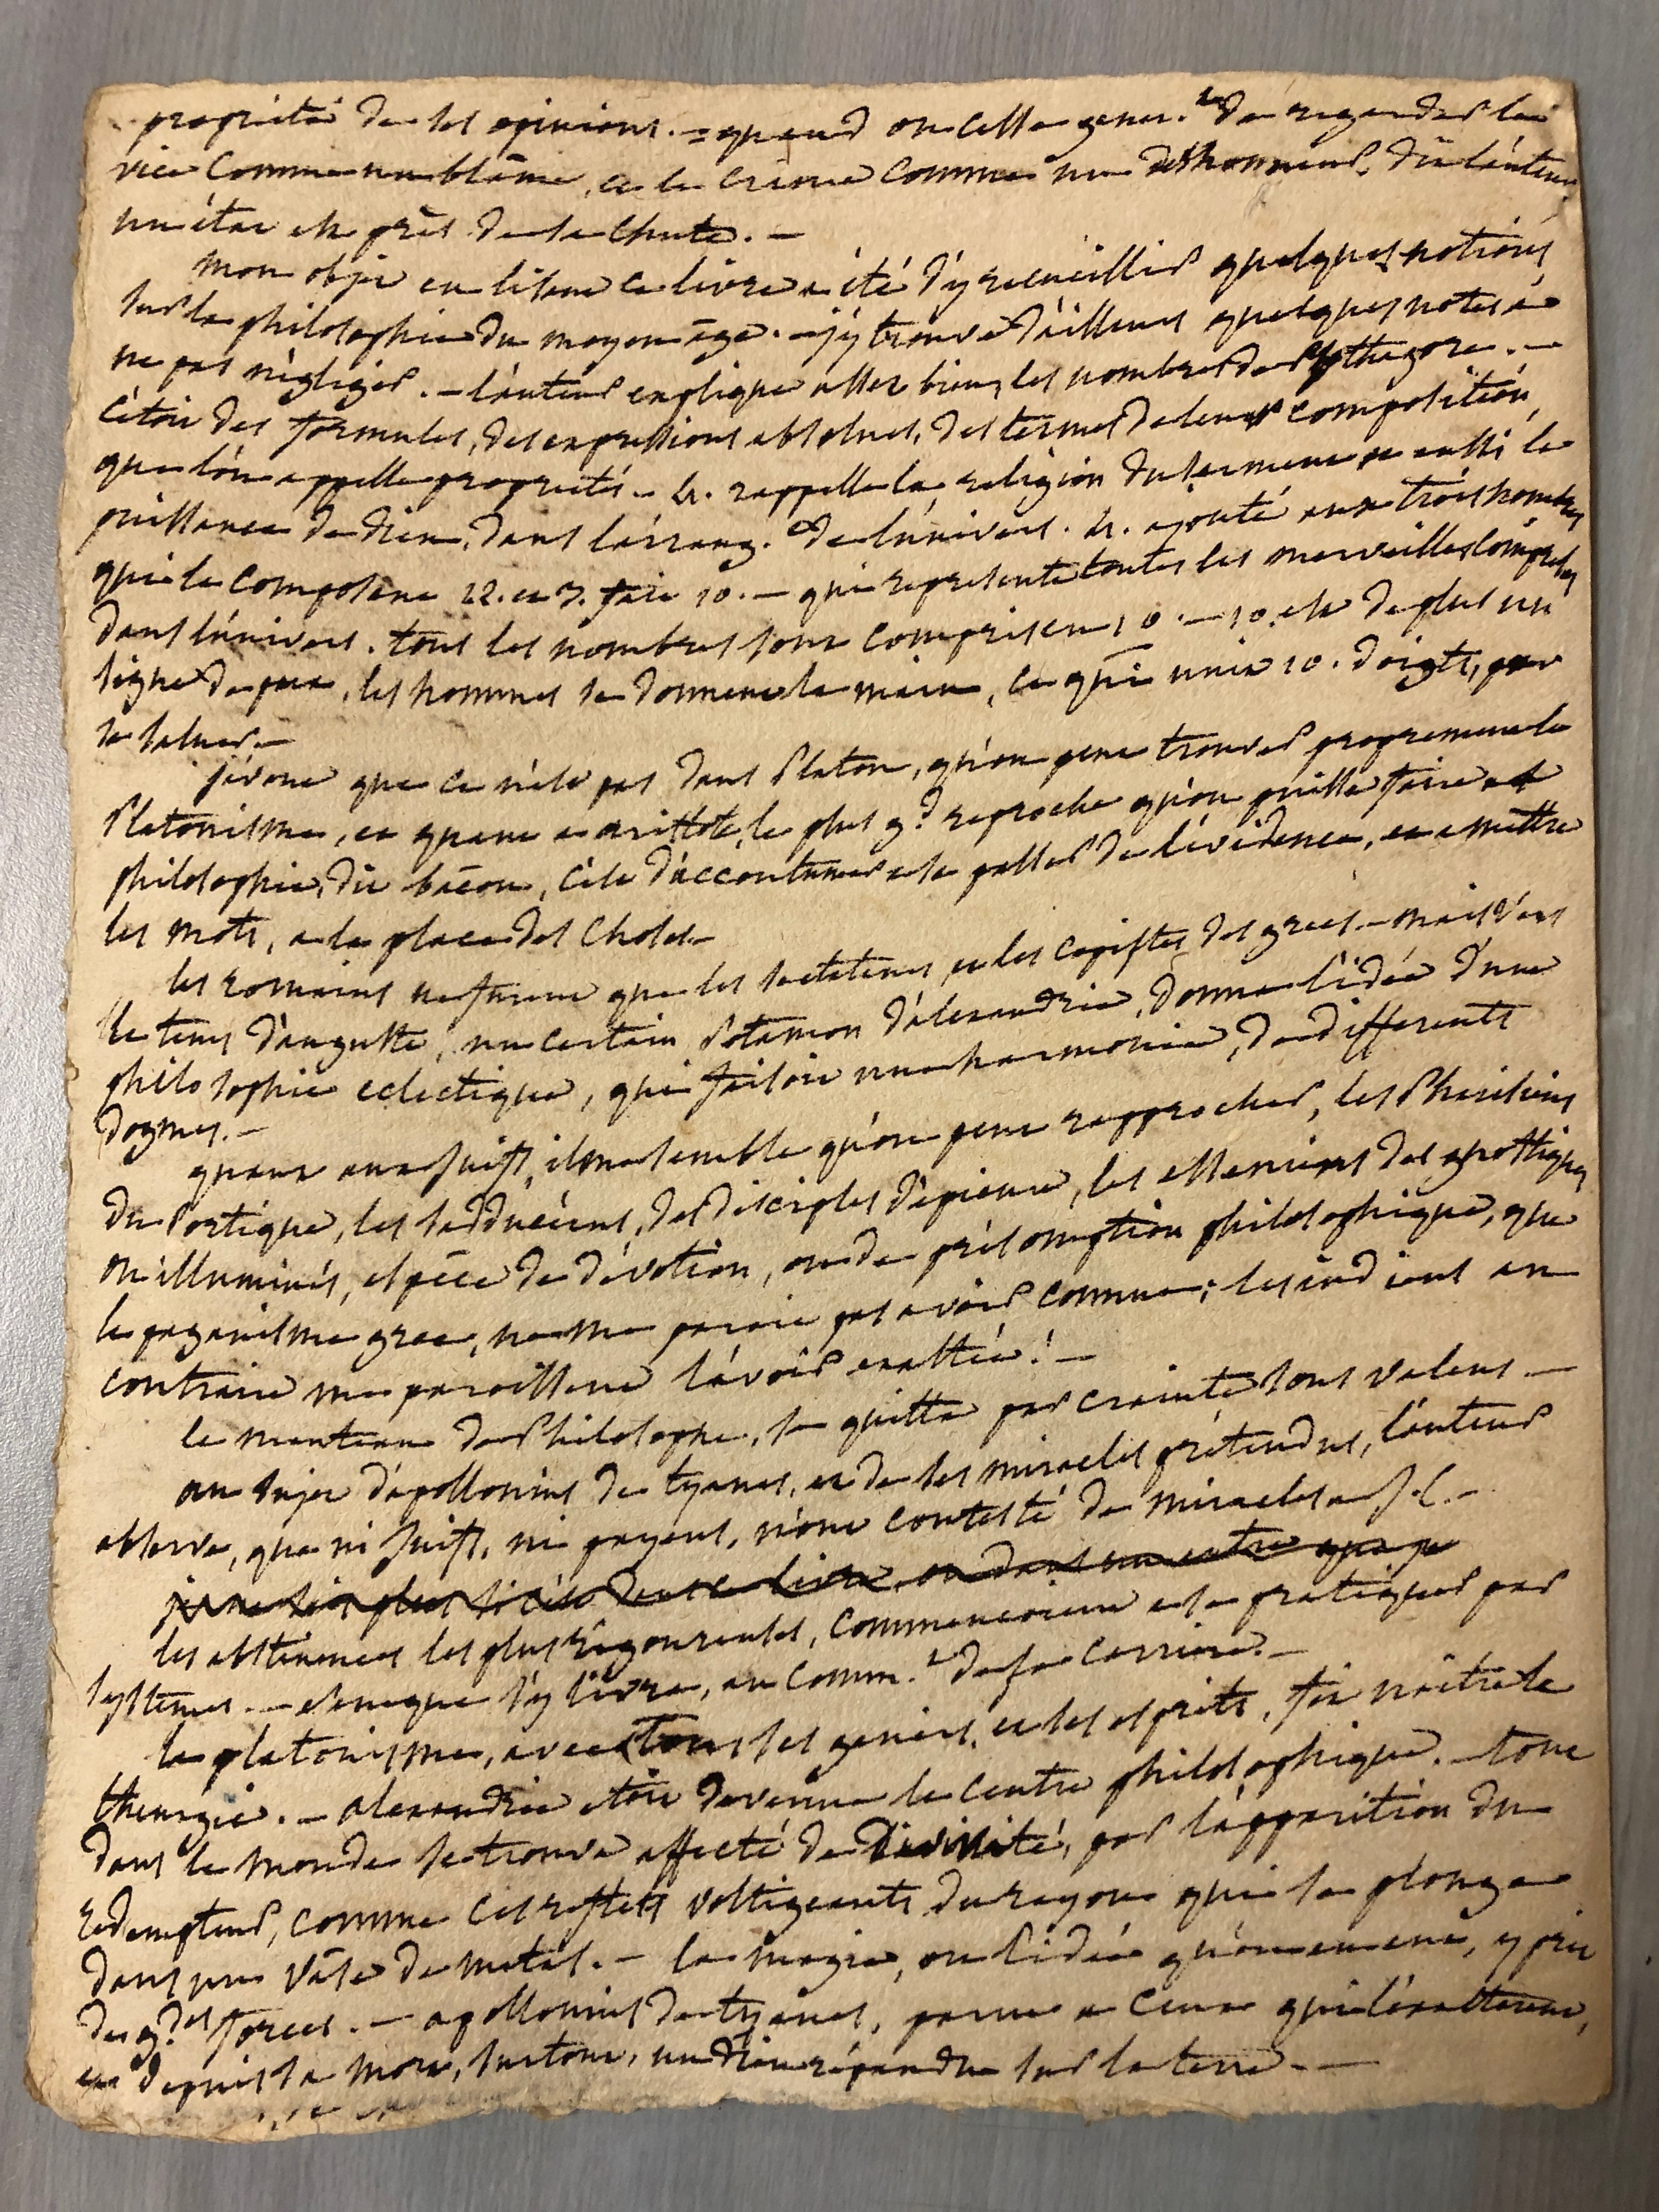 propriété de ses opinions. = quand on cesse gener.^t de regarder le
vice comme un blâme, et le crime comme un deshonneur, dit l'auteur
un état est près de sa chute. —
mon objet en lisant ce livre a été d'y recueillir quelques notions
sur la philosophie du moyen age. — j'y trouve d'ailleurs quelques notes à
ne pas négliger. — l'auteur explique assez bien, les nombres de Pythagore. —
c'étoit des formules, des expressions absolues, des termes de leur composition,
que l'on appelle propriétés. — 4. rappelle la religion du serment et aussi la
puissance de dieu, dans l'arrang.^t de l'univers. 4. ajouté aux trois nombres
qui le composent 1 2. et 3. fait 10. — qui represente toutes les merveilles comprises
dans l'univers. tous les nombres sont compris en 10. — 10. est de plus un
signe de paix, les hommes se donnent la main, ce qui unit 10. doigts, pour
se saluer. —
j'avoue que ce n'est pas dans Platon, qu'on peut trouver proprement le
Platonisme, et quant a aristote, le plus g.^d reproche qu'on puisse faire a sa
philosophie, dit bacon, c'est d'accoutumer a se passer de l'évidence, et a mettre
les mots, a la place des choses. —
les romains ne furent que les sectateurs, et les copistes des grecs. — mais vers
le tems d'auguste, un certain Potamon d'alexandrie, donna l'idée d'une
philosophie eclectique, qui faisoit une harmonie, de differents
dogmes. —
quant aux juifs, il me semble qu'on peut rapprocher, les Pharisiens
du Portique, les sadducéens, des disciples d'épicure, les esseniens des gnostiques
ou illuminés, espèce de dévotion, ou de présomption philosophique, que
le paganisme grec, ne me paroit pas avoir connue; les indiens au
contraire me paroissent l'avoir exaltée! —
le manteau de Philosophe, se quitta par crainte sous valens. —
au sujet d'apollonius de tyanes, et de ses miracles prétendus, l'auteur
observe, que ni juifs, ni payens, n'ont contesté de miracles a J. C. —
je ne sais plus si c'est dans ce livre, ou dans un autre que je
les abstinences les plus rigoureuses, commencoient a se pratiquer par
systemes. — seneque s'y livra, au comm.^t de sa carriere. —
le platonisme, avec tous ses genies, et ses esprits, fit naitre la
theurgie. — alexandrie etoit devenue le centre philosophique. — tout
dans le monde se trouva affecté de divinité, par l'apparition du
redempteur, comme ces reflets voltigeants du rayon qui se plonge
dans un vase de metal. — la magie, ou l'idée qu'on en eut, y prit
de g.^des forces. — apollonius de tyanes, parut a ceux qui l'exalterent,
et depuis sa mort, surtout, un dieu répandu sur la terre. —